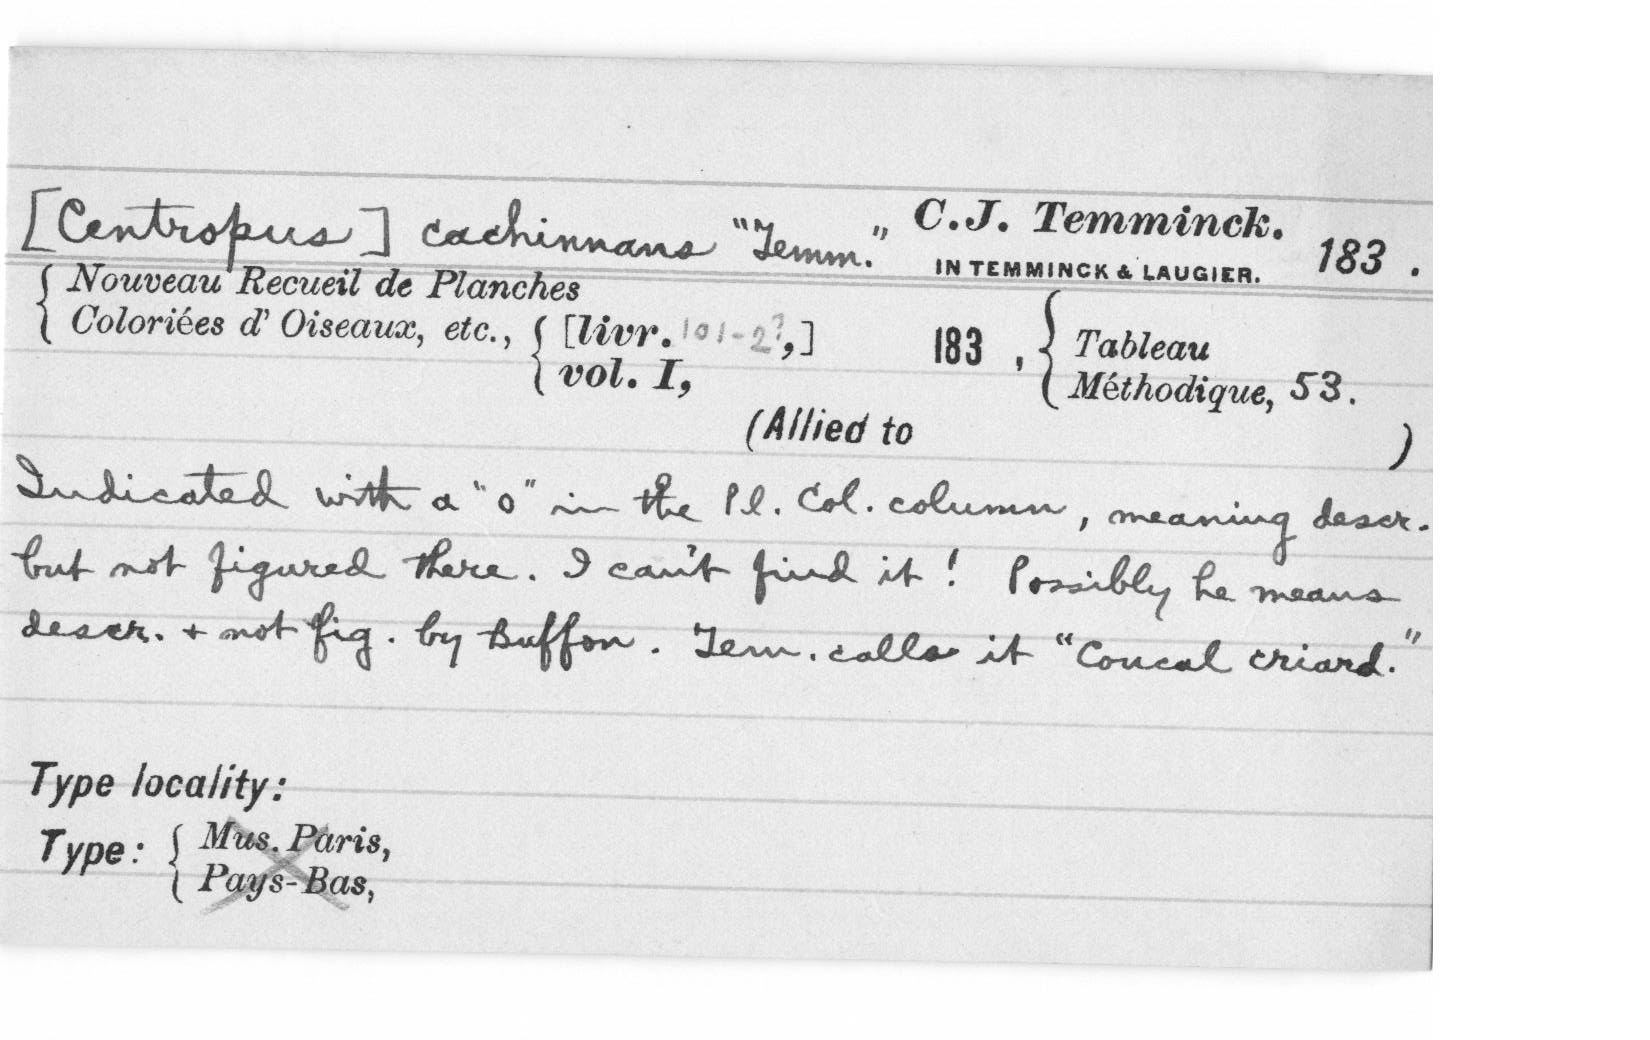 [Centropus] cachinnans "Temm." C.J. Temminck. 183.
IN TEMMINCK & LAUGIER.
Nouveau Recueil de Planches
Coloriées d' Oiseaux, etc., [livr. 101-2?,] 183, Tableau
vol. I, Méthodique, 53.
(Allied to )
Indicated with a "o" in the Pl. Col. column, meaning descr.
but not figured there. I can't find it! Possibly he means
descr. + not fig. by Buffon. Tem. calls it "Coucal criard."
Type locality:
Type: Mus. Paris,
Pays-Bas,